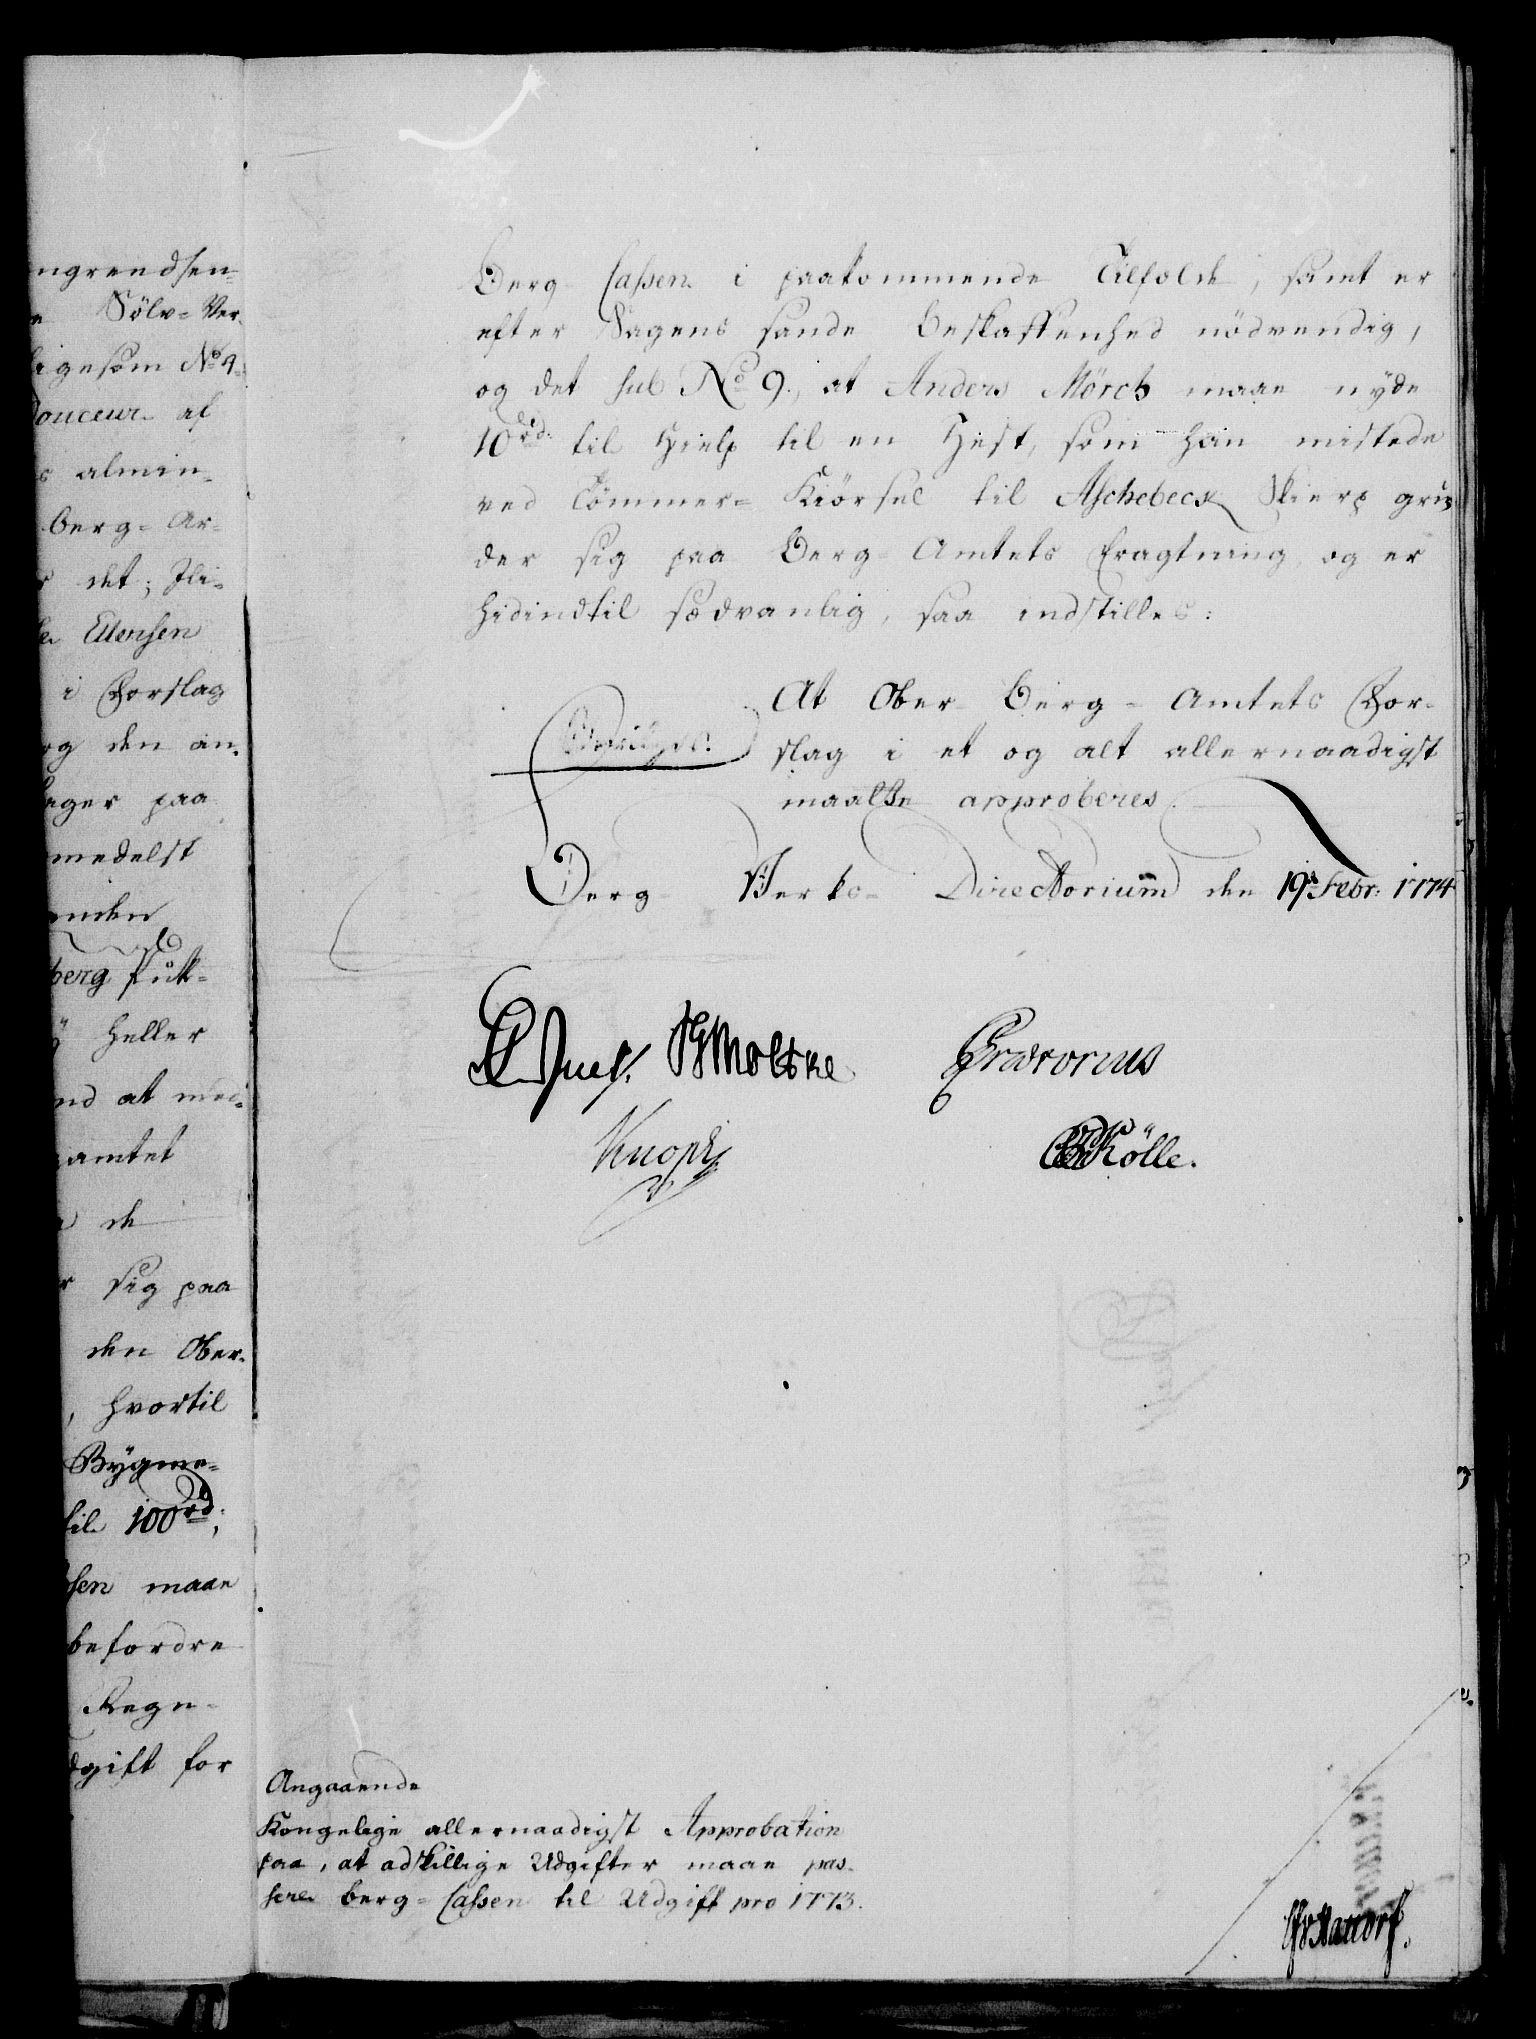 ngrendsen=
Sölv= Ver.
ligesom No 4.
Douceur af
almin-
Berg= Ar=
det; Ili-
Ellensen
i Forslag
og den an-
tager paa
medelst
enden
berg Puk=
heller
nd at med-
amtet
de
sig paa
den Ober-
, hvortil
Bÿgme=
til 100rd.,
sen maae
befordre
Regn-
dgift for
Berg Cassen i paakommende Tilfælde, samt er
efter Sagens sande Beskaffenhed nödvendig,
og det sub No 9., at Anders Mörch maae nÿde
10rd. til Hielp til en Hest, som han mistede
ved Tömmer= Kiörsel til Aschebeck Skierp grün
der sig paa Berg- Amtets Fragtning, og er
hidindtil sædvanlig, saa indstilles:
At Ober Berg- Amtets For-
slag i et og alt allernaadigst
maatte approberes.
Berg- Verks- Directorium den 19de Febr: 1774
Juel. Moltke Prætorius
Knoph Kölle.
Angaaende
Kongelige allernaadigst Approbation
paa, at adskillige Udgifter maae pas-
sere Berg= Cassen til Udgift pro 1773.